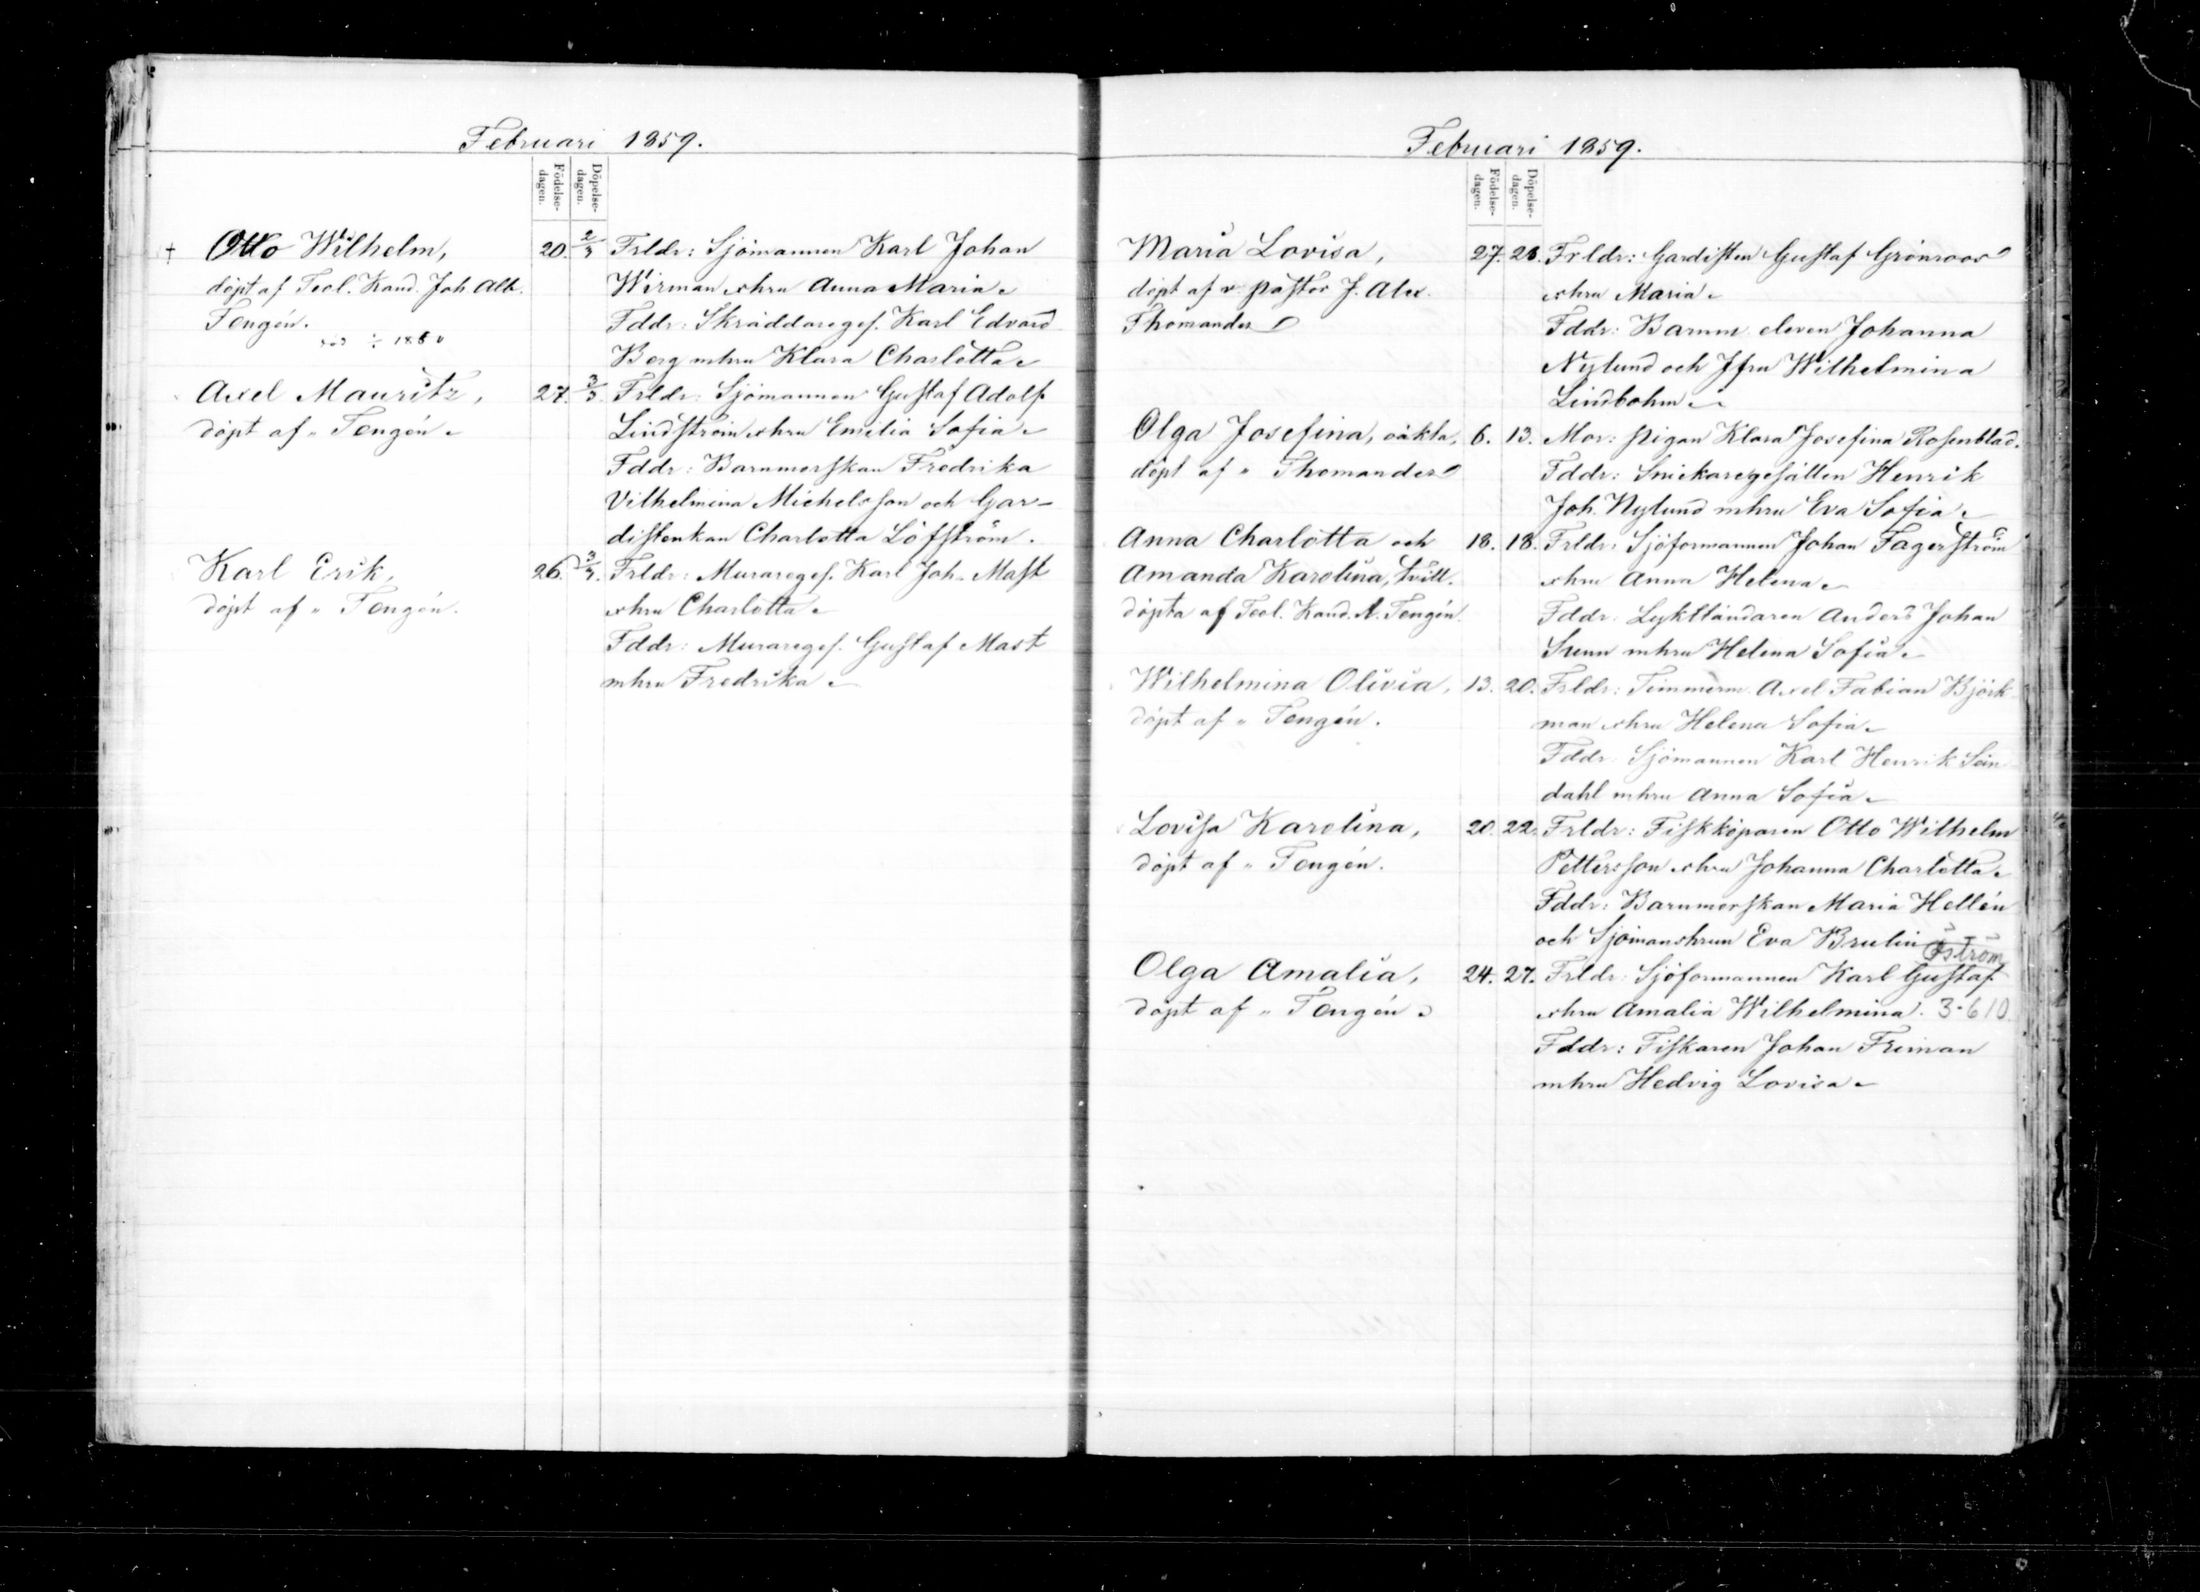 Februari 1859.
Födelse-
dagen.
Döpelse-
dagen.
† Otto Wilhelm, 20. 2/3 Frldr: Sjömannen Karl Johan
döpt af Teol. Kand. Joh Alb. Wirman o hru Anna Maria.
Tengén. Fddr: Skräddareges. Karl Edvard
1860 Berg m hru Klara Charlotta.
Axel Mauritz, 27. 3/3. Frldr: Sjömannen Gustaf Adolf
döpt af " Tengén. Lindström o hru Emilia Sofia.
Fddr: Barnmorskan Fredrika
Vilhelmina Michelsson och Gar-
distenkan Charlotta Löfström.
Karl Erik, 26. 3/3. Frldr: Murareges. Karl Joh. Mast
döpt af " Tengén. o hru Charlotta.
Fddr: Murareges. Gustaf Mast
m hru Fredrika.
Februari 1859.
Födelse-
dagen.
Döpelse-
dagen.
Maria Lovisa, 27. 28. Frldr: Gardisten Gustaf Grönroos
döpt af v. pastor J. Alex. o hru Maria.
Thomander Fddr: Barnm. eleven Johanna
Nylund och Jfru Wilhelmina
Lindbohm.
Olga Josefina, oäkta, 6. 13. Mor: pigan Klara Josefina Rosenblad.
döpt af " Thomander Fddr: Snickaregesällen Henrik
Joh. Nylund m hru Eva Sofia.
Anna Charlotta och 18. 18. Frldr: Sjöformannen Johan Fagerström
Amanda Karolina, tvill. o hru Anna Helena.
döpta af Teol. Kand. A. Tengén. Fddr: Lyktländaren Anders Johan
m hru Helena Sofia.
Wilhelmina Olivia, 13. 20. Frldr: Timmerm. Axel Fabian Björk-
döpt af " Tengén. man o hru Helena Sofia.
Fddr: Sjömannen Karl Henrik
dahl m hru Anna Sofia.
Lovisa Karolina, 20. 22. Frldr: Fiskköparen Otto Wilhelm
döpt af " Tengén. Pettersson o hru Johanna Charlotta.
Fddr: Barnmorskan Maria Hellén
och Sjömanshrun Eva Brulin
Öström
Olga Amalia, 24. 27. Frldr: Sjöformannen Karl Gustaf
döpt af " Tengén. o hru Amalia Wilhelmina. 3.610.
Fddr: Fiskaren Johan Friman
m hru Hedvig Lovisa.